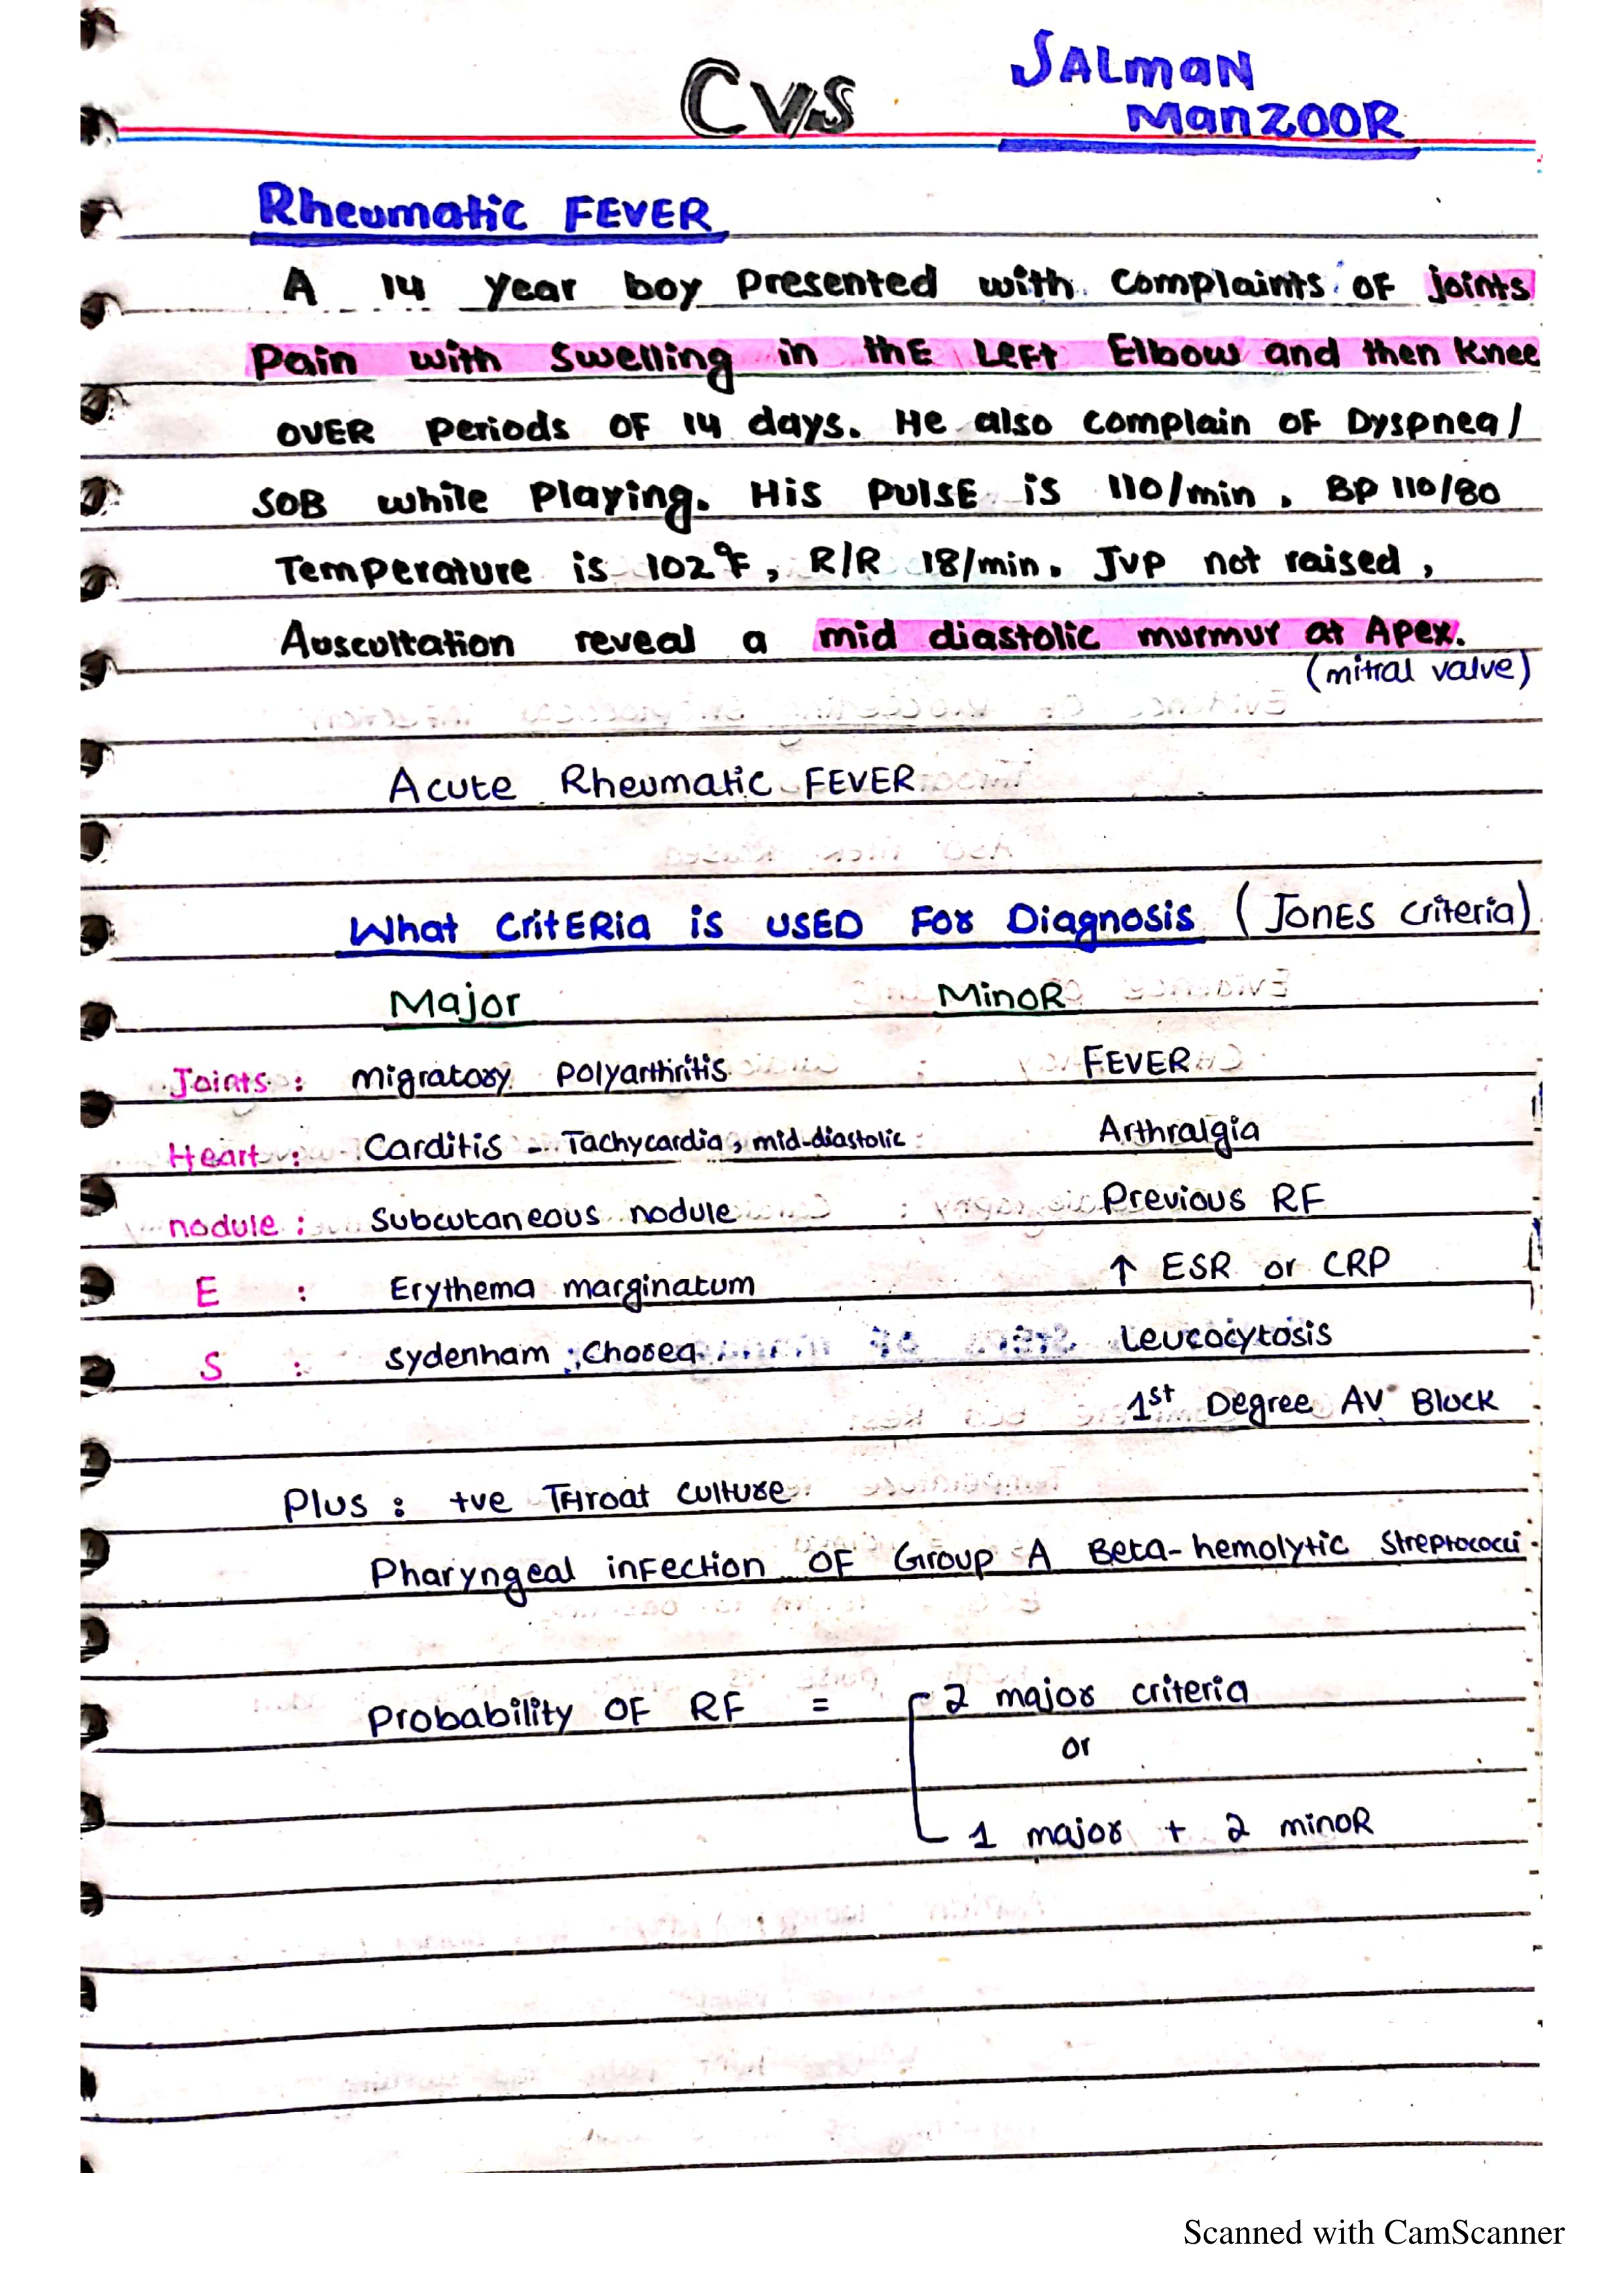 CVS
SALMAN
MANZOOR
Rheumatic FEVER
A 14 year boy presented with complaints of joints
pain with swelling in the Left Elbow and then knee
over periods of 14 days. He also complain of Dyspnea/
SOB while playing. His pulse is 110/min, BP 110/80
Temperature is 102°F, R/R 18/min. JVP not raised,
Auscultation reveal a mid diastolic murmur at Apex.
(mitral valve)
Acute Rheumatic FEVER
What Criteria is used for Diagnosis (JONES criteria)
Major MinoR
Joints : migratory polyarthritis FEVER
Heart : Carditis - Tachycardia, mid-diastolic Arthralgia
nodule : Subcutaneous nodule Previous RF
E : Erythema marginatum ↑ ESR or CRP
S : Sydenham Chorea Leucocytosis
1st Degree AV Block
Plus : +ve Throat culture
Pharyngeal infection of Group A Beta-hemolytic Streptococci
Probability of RF = 2 major criteria
or
1 major + 2 minoR
Scanned with CamScanner